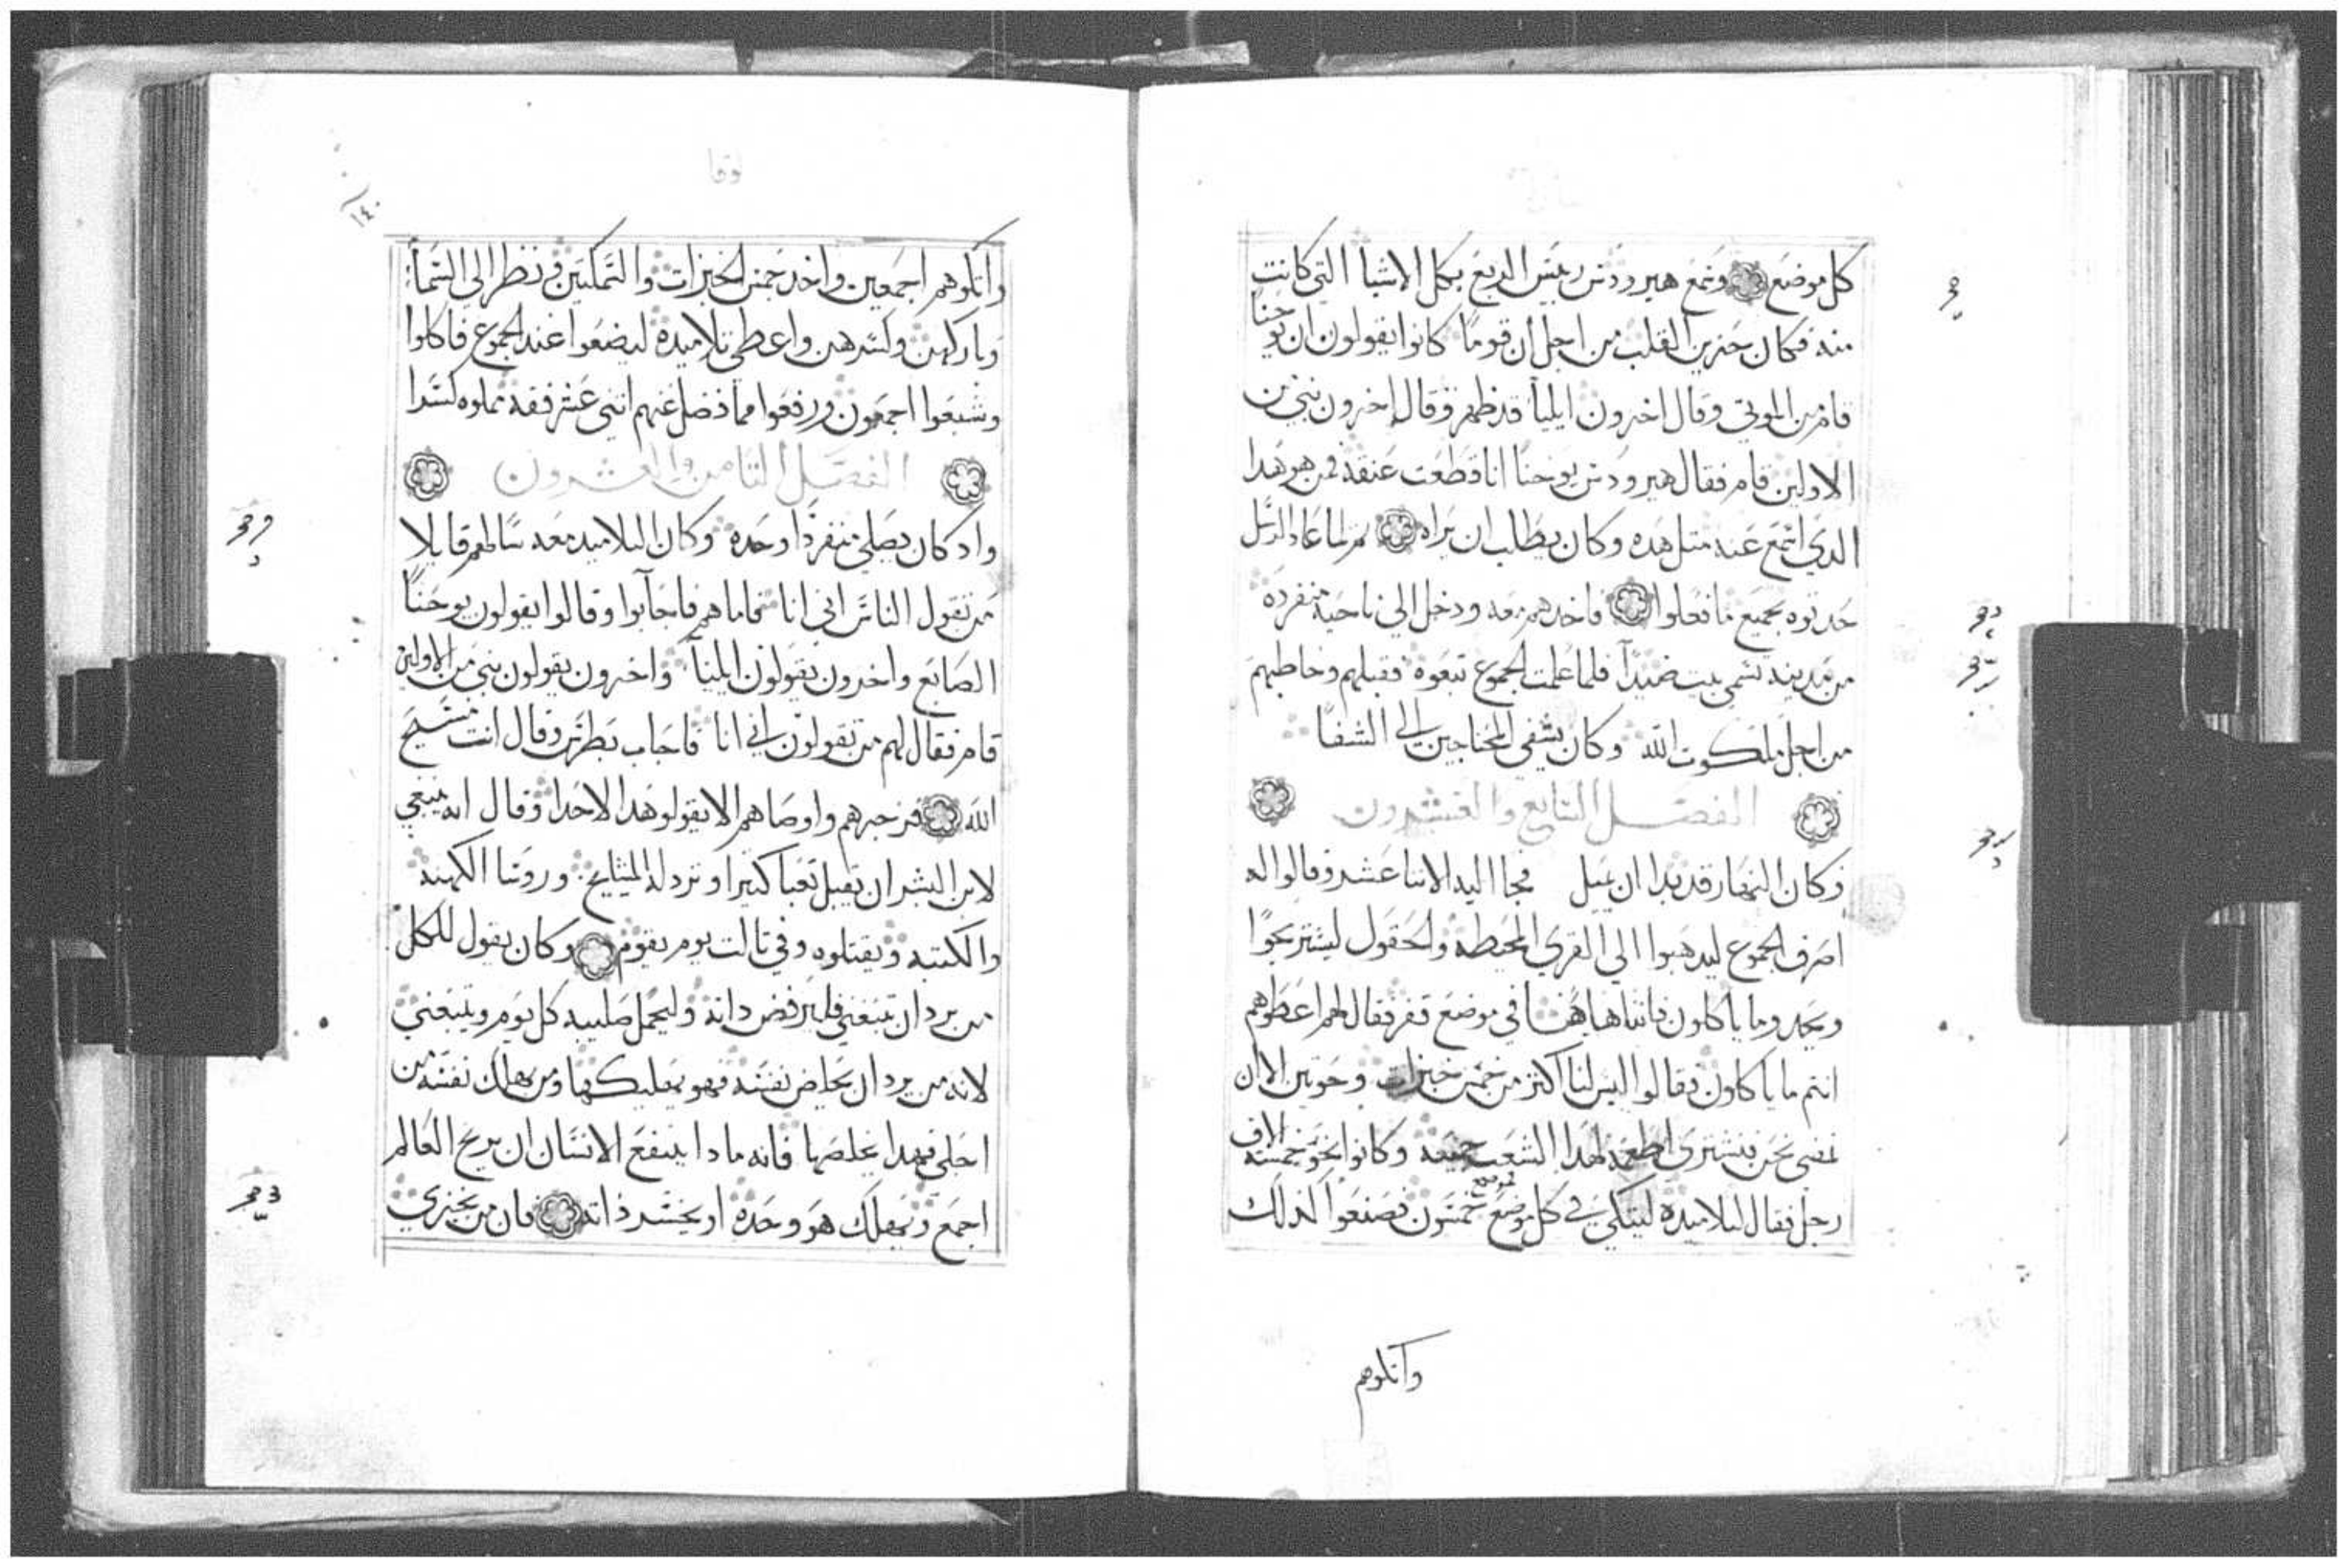 كل موضع وسمع هيرودس رييس الربع بكل الاشيا التي كانت
منه فكان حزين القلب من اجل ان قومًا كانوا يقولون ان يوحنا
قام من الموتي وقال اخرون ايليا قد ظهر وقال اخرون نبي من
الاولين قام فقال هيرودس يوحنا انا قطعت عنقه فمن هو هدا
الدي اسمع عنه متل هده وكان يطلب ان يراه ثم لما عاد الرسل
حدتوه بجميع ما فعلوا فاخدهم معه ودخل الي ناحية منفرده
من مدينه تسمي بيت صيدا فلما علمت الجموع تبعوه فقبلهم وخاطبهم
من اجل ملكوت الله وكان يشفي المحتاجين الي الشفا
الفصل السابع والعشرون
وكان النهار قد بدا ان يميل فجا اليه الاتنا عشر وقالوا له
اصرف الجموع ليدهبوا الي القري المحيطه والحقول ليستريحوا
ويجدوا ما ياكلون فاننا هاهنا في موضع قفر فقال لهم اعطوهم
انتم ما ياكلون فقالوا ليس لنا اكثر من خمس خبزات وحوتين الا ان
نمضي نحن فنشتري اطعمه لهدا الشعب جميعه وكانوا نحو خمسة الاف
رجل فقال لتلاميده ليتكي في كل موضع خمسون فصنعوا كذلك
واتكوهم
لوقا
١٤٠
واتكوهم اجمعين واخد خمس الخبزات والسمكتين ونظر الي السما
وباركهن وكسرهن واعطي تلاميده ليضعوا عند الجموع فاكلوا
وشبعوا اجمعون ورفعوا مما فضل عنهم اتني عشر قفه مملوه كسرا
الفصل التامن والعشرون
واد كان يصلي منفردًا وحده وكان التلاميد معه سالهم قايلا
من تقول الناس اني انا فاما هم فاجابوا وقالوا يقولون يوحنا
الصابغ واخرون يقولون ايليا واخرون يقولون نبي من الاولين
قام فقال لهم من تقولون اني انا فاجاب بطرس وقال انت مسيح
الله فزجرهم واوصاهم الا يقولوا هدا لاحد وقال انه ينبغي
لابن البشر ان يقبل تعبا كثيرا وتردله المشايخ وروسا الكهنه
والكتبه ويقتلوه وفي تالت يوم يقوم وكان يقول للكل
من يرد ان يتبعني فليرفض داته وليحمل صليبه كل يوم ويتبعني
لانه من يرد ان يخلص نفسه فهو يهلكها ومن يهلك نفسه من
اجلي فهدا يخلصها فانه مادا ينفع الانسان ان يربح العالم
اجمع ويهلك هو وحده او يخسر ذاته فان من يخزي